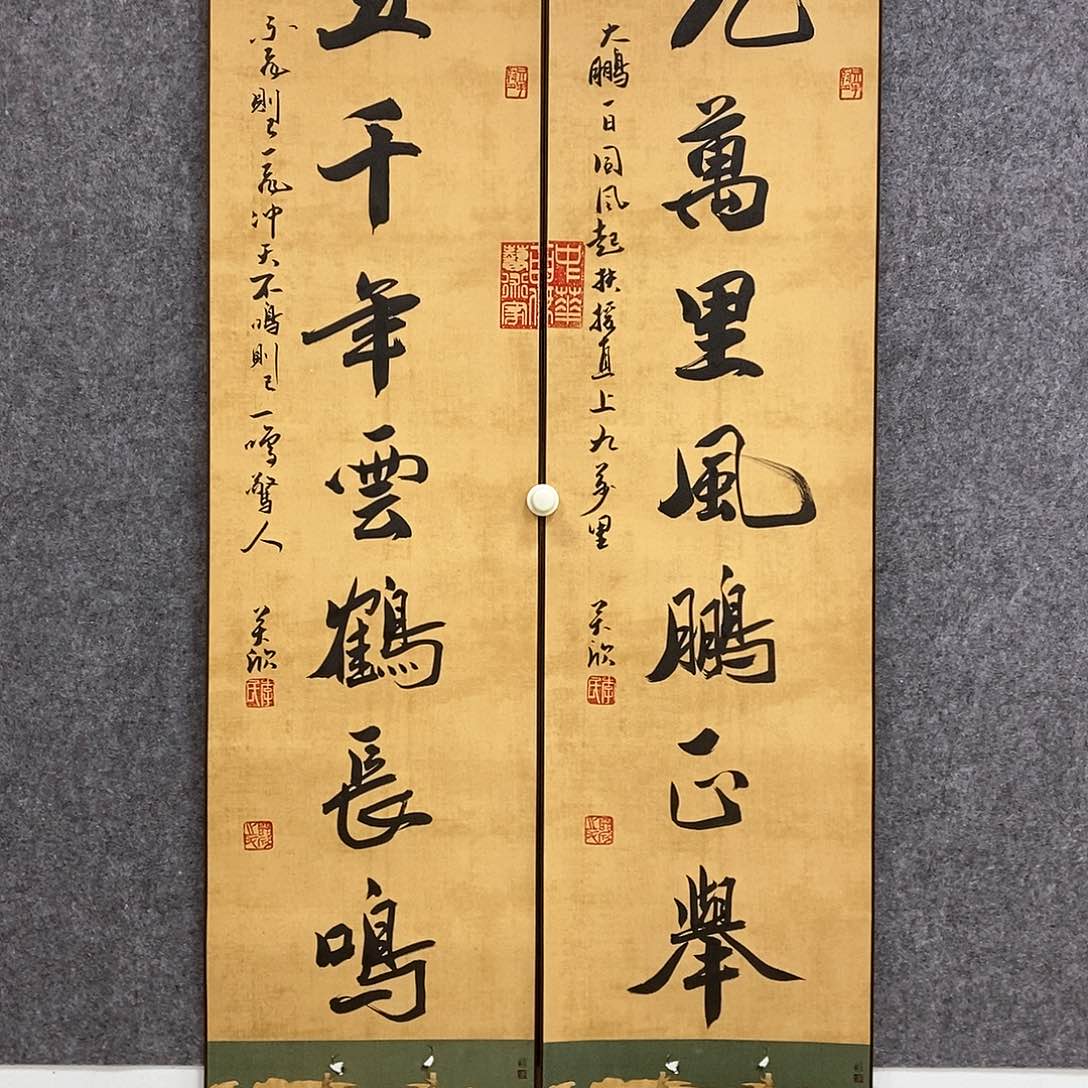 九萬里風鵬正舉
大鵬一日同風起扶摇直上九万里
五千年雲鶴長鳴
不飛則已一飛冲天不鳴則已一鳴驚人
中華
藝術家